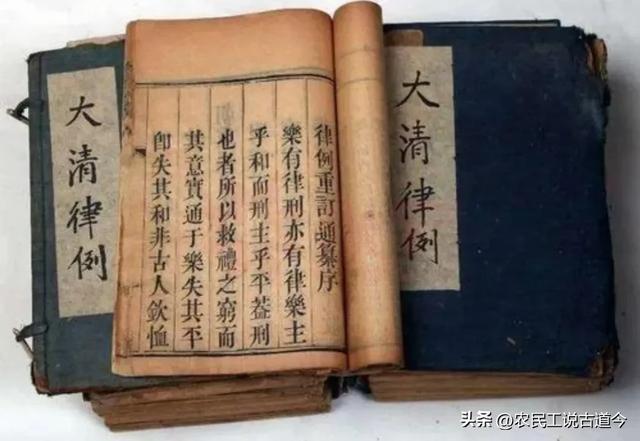 大清律例
律例重訂通纂序
樂有律刑亦有律樂主
乎和而刑主乎平葢刑
也者所以救禮之窮而
其意實通于樂失其平
卽失其和非古人欽恤
大清律例
头条 @农民工说古道今